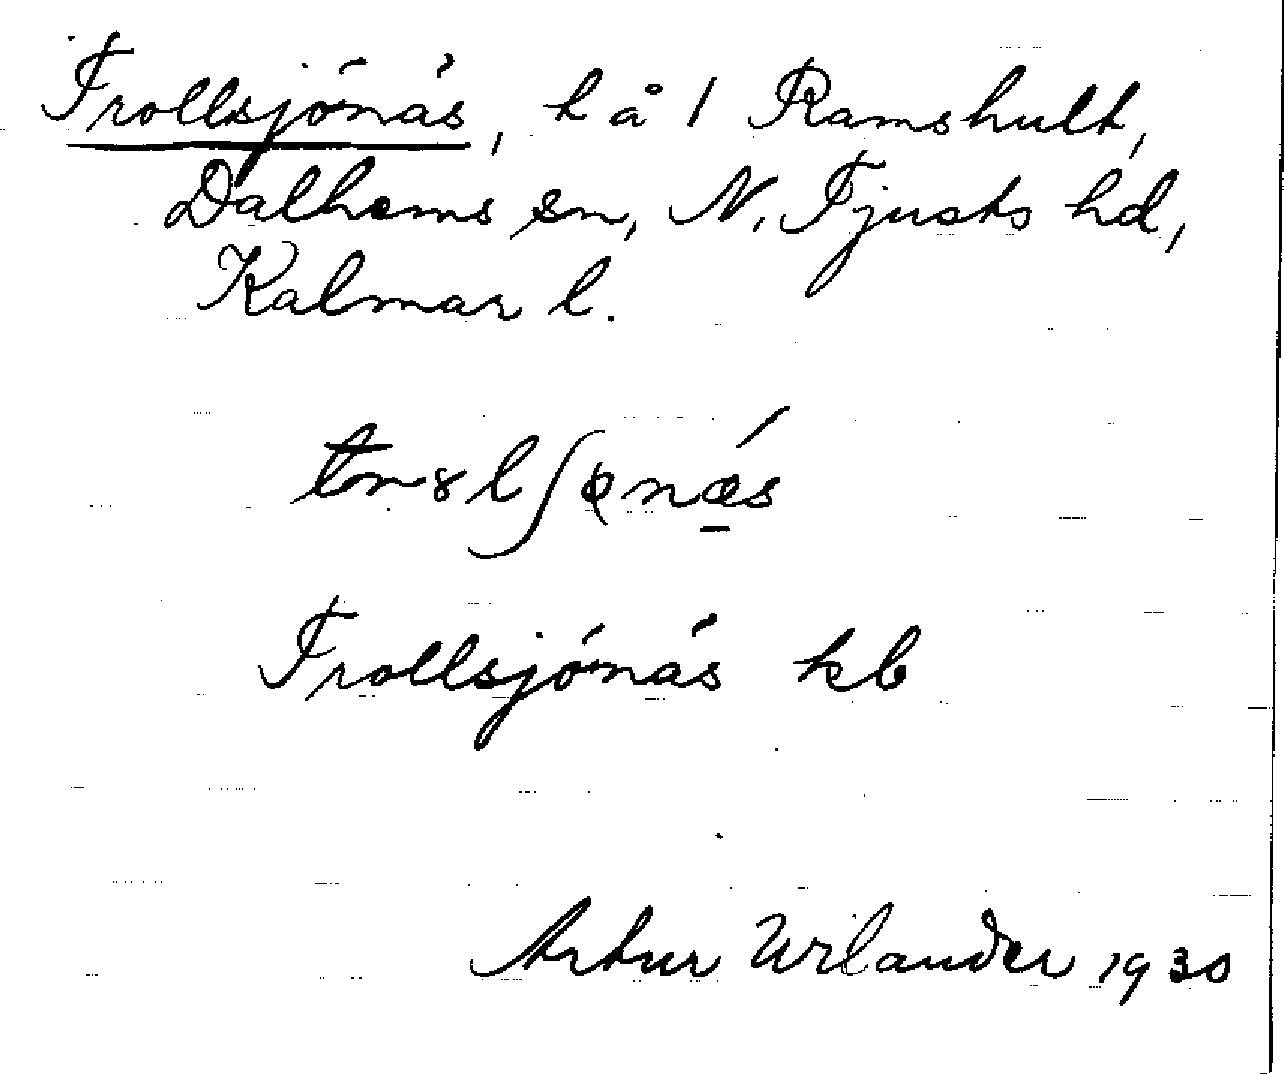 Trollsjönäs, t å 1 Ramshult,
Dalhems sn, N. Tjusts hd,
Kalmar l.
Trollsjönäs kb
Artur Wilander 1930